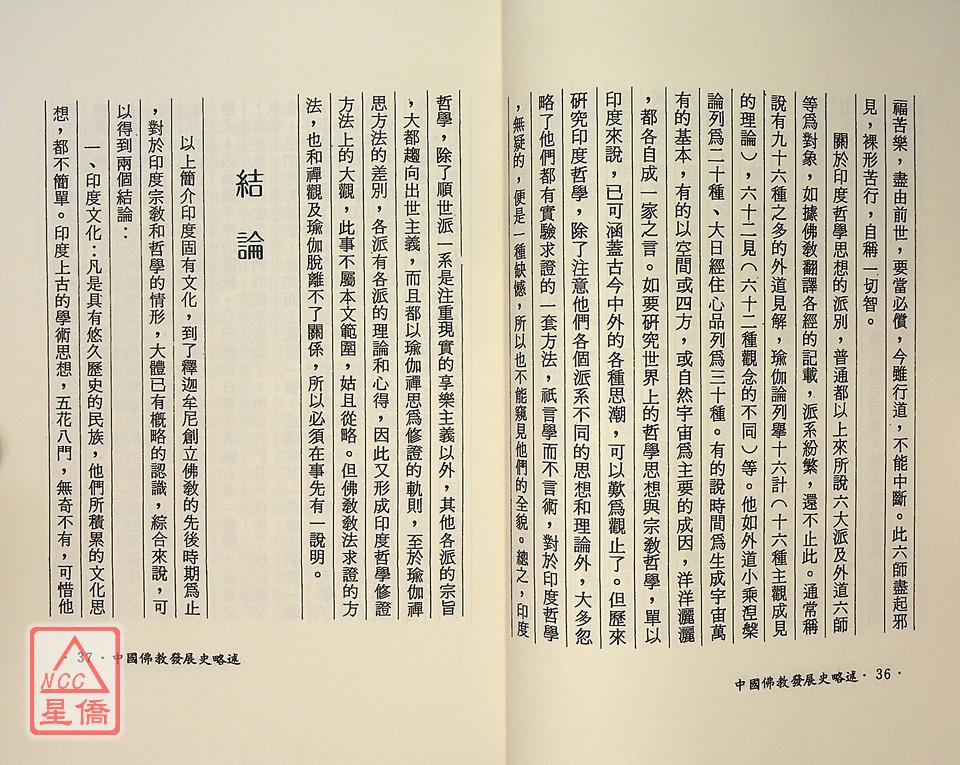 福苦樂，盡由前世，要當必償，今雖行道，不能中斷。此六師盡起邪
見，裸形苦行，自稱一切智。
關於印度哲學思想的派別，普通都以上來所說六大派及外道六師
等爲對象，如據佛教翻譯各經的記載，派系紛繁，還不止此。通常稱
說有九十六種之多的外道見解，瑜伽論列擧十六計（十六種主觀成見
的理論），六十二見（六十二種觀念的不同）等。他如外道小乘湼槃
論列爲二十種、大日經住心品列爲三十種。有的說時間爲生成宇宙萬
有的基本，有的以空間或四方，或自然宇宙爲主要的成因，洋洋灑灑
，都各自成一家之言。如要研究世界上的哲學思想與宗教哲學，單以
印度來說，已可涵蓋古今中外的各種思潮，可以歎爲觀止了。但歷來
研究印度哲學，除了注意他們各個派系不同的思想和理論外，大多忽
略了他們都有實驗求證的一套方法，祇言學而不言術，對於印度哲學
，無疑的，便是一種缺憾，所以也不能窺見他們的全貌。總之，印度
中國佛教發展史略述・36・
哲學，除了順世派一系是注重現實的享樂主義以外，其他各派的宗旨
，大都趨向出世主義，而且都以瑜伽禪思爲修證的軌則，至於瑜伽禪
思方法的差別，各派有各派的理論和心得，因此又形成印度哲學修證
方法上的大觀，此事不屬本文範圍，姑且從略。但佛教教法求證的方
法，也和禪觀及瑜伽脫離不了關係，所以必須在事先有一說明。
結論
以上簡介印度固有文化，到了釋迦牟尼創立佛教的先後時期爲止
，對於印度宗教和哲學的情形，大體已有概略的認識，綜合來說，可
以得到兩個結論：
一、印度文化：凡是具有悠久歷史的民族，他們所積累的文化思
想，都不簡單。印度上古的學術思想，五花八門，無奇不有，可惜他
・37・中國佛教發展史略述
NCC
星僑